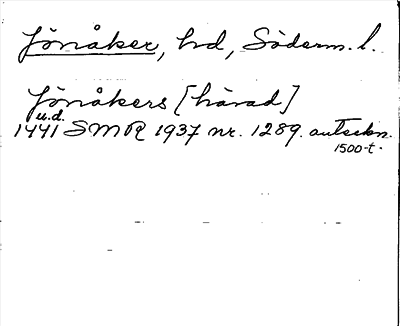 Jönåker, hd, Söderm. l.
Jönåkers [härad]
u.d.
1441 SMR 1937 nr. 1289. anteckn.
1500-t.